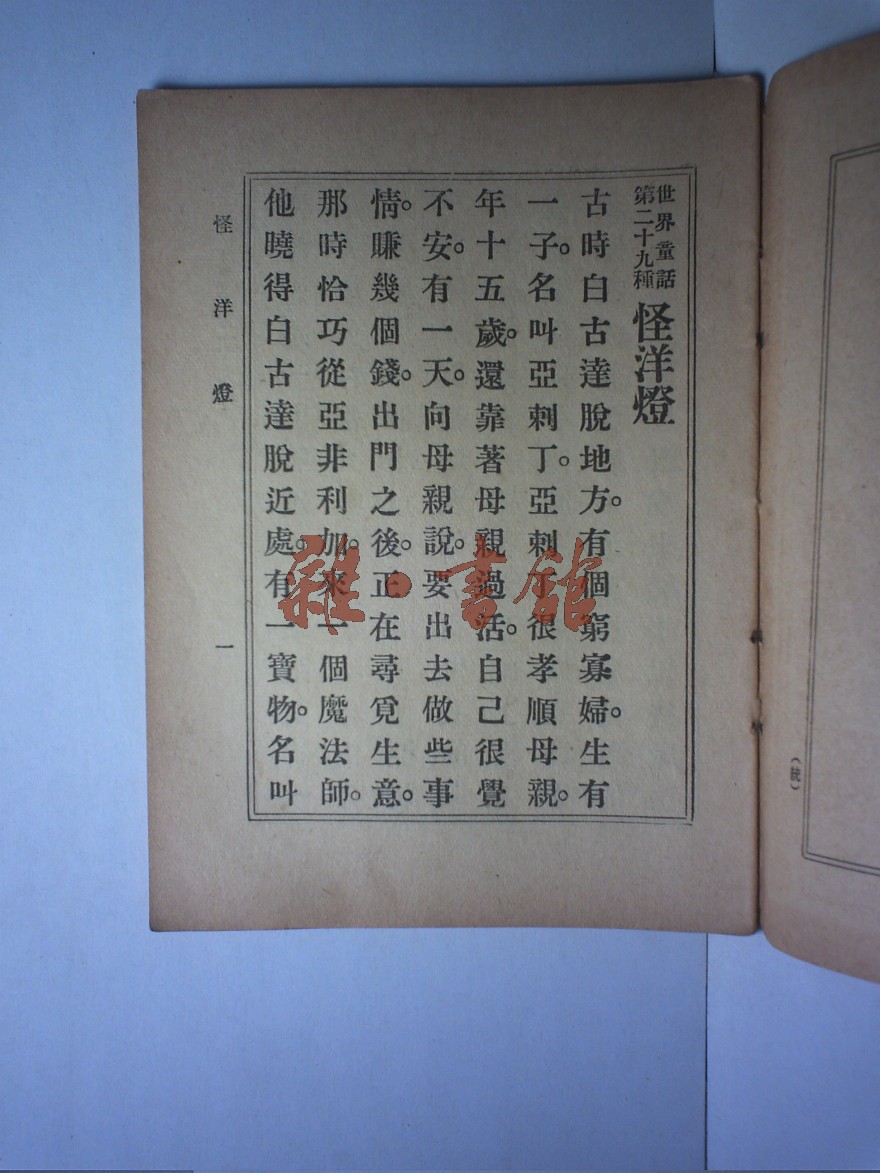 世界童話
第二十九種
怪洋燈
古時白古達脫地方。有個窮寡婦。生有
一子。名叫亞刺丁。亞刺丁很孝順母親。
年十五歲。還靠著母親過活。自己很覺
不安。有一天。向母親說。要出去做些事
情。賺幾個錢。出門之後。正在尋覓生意。
那時恰巧從亞非利加。來一個魔法師。
他曉得白古達脫近處。有一寶物。名叫
怪洋燈
一
雜·書館